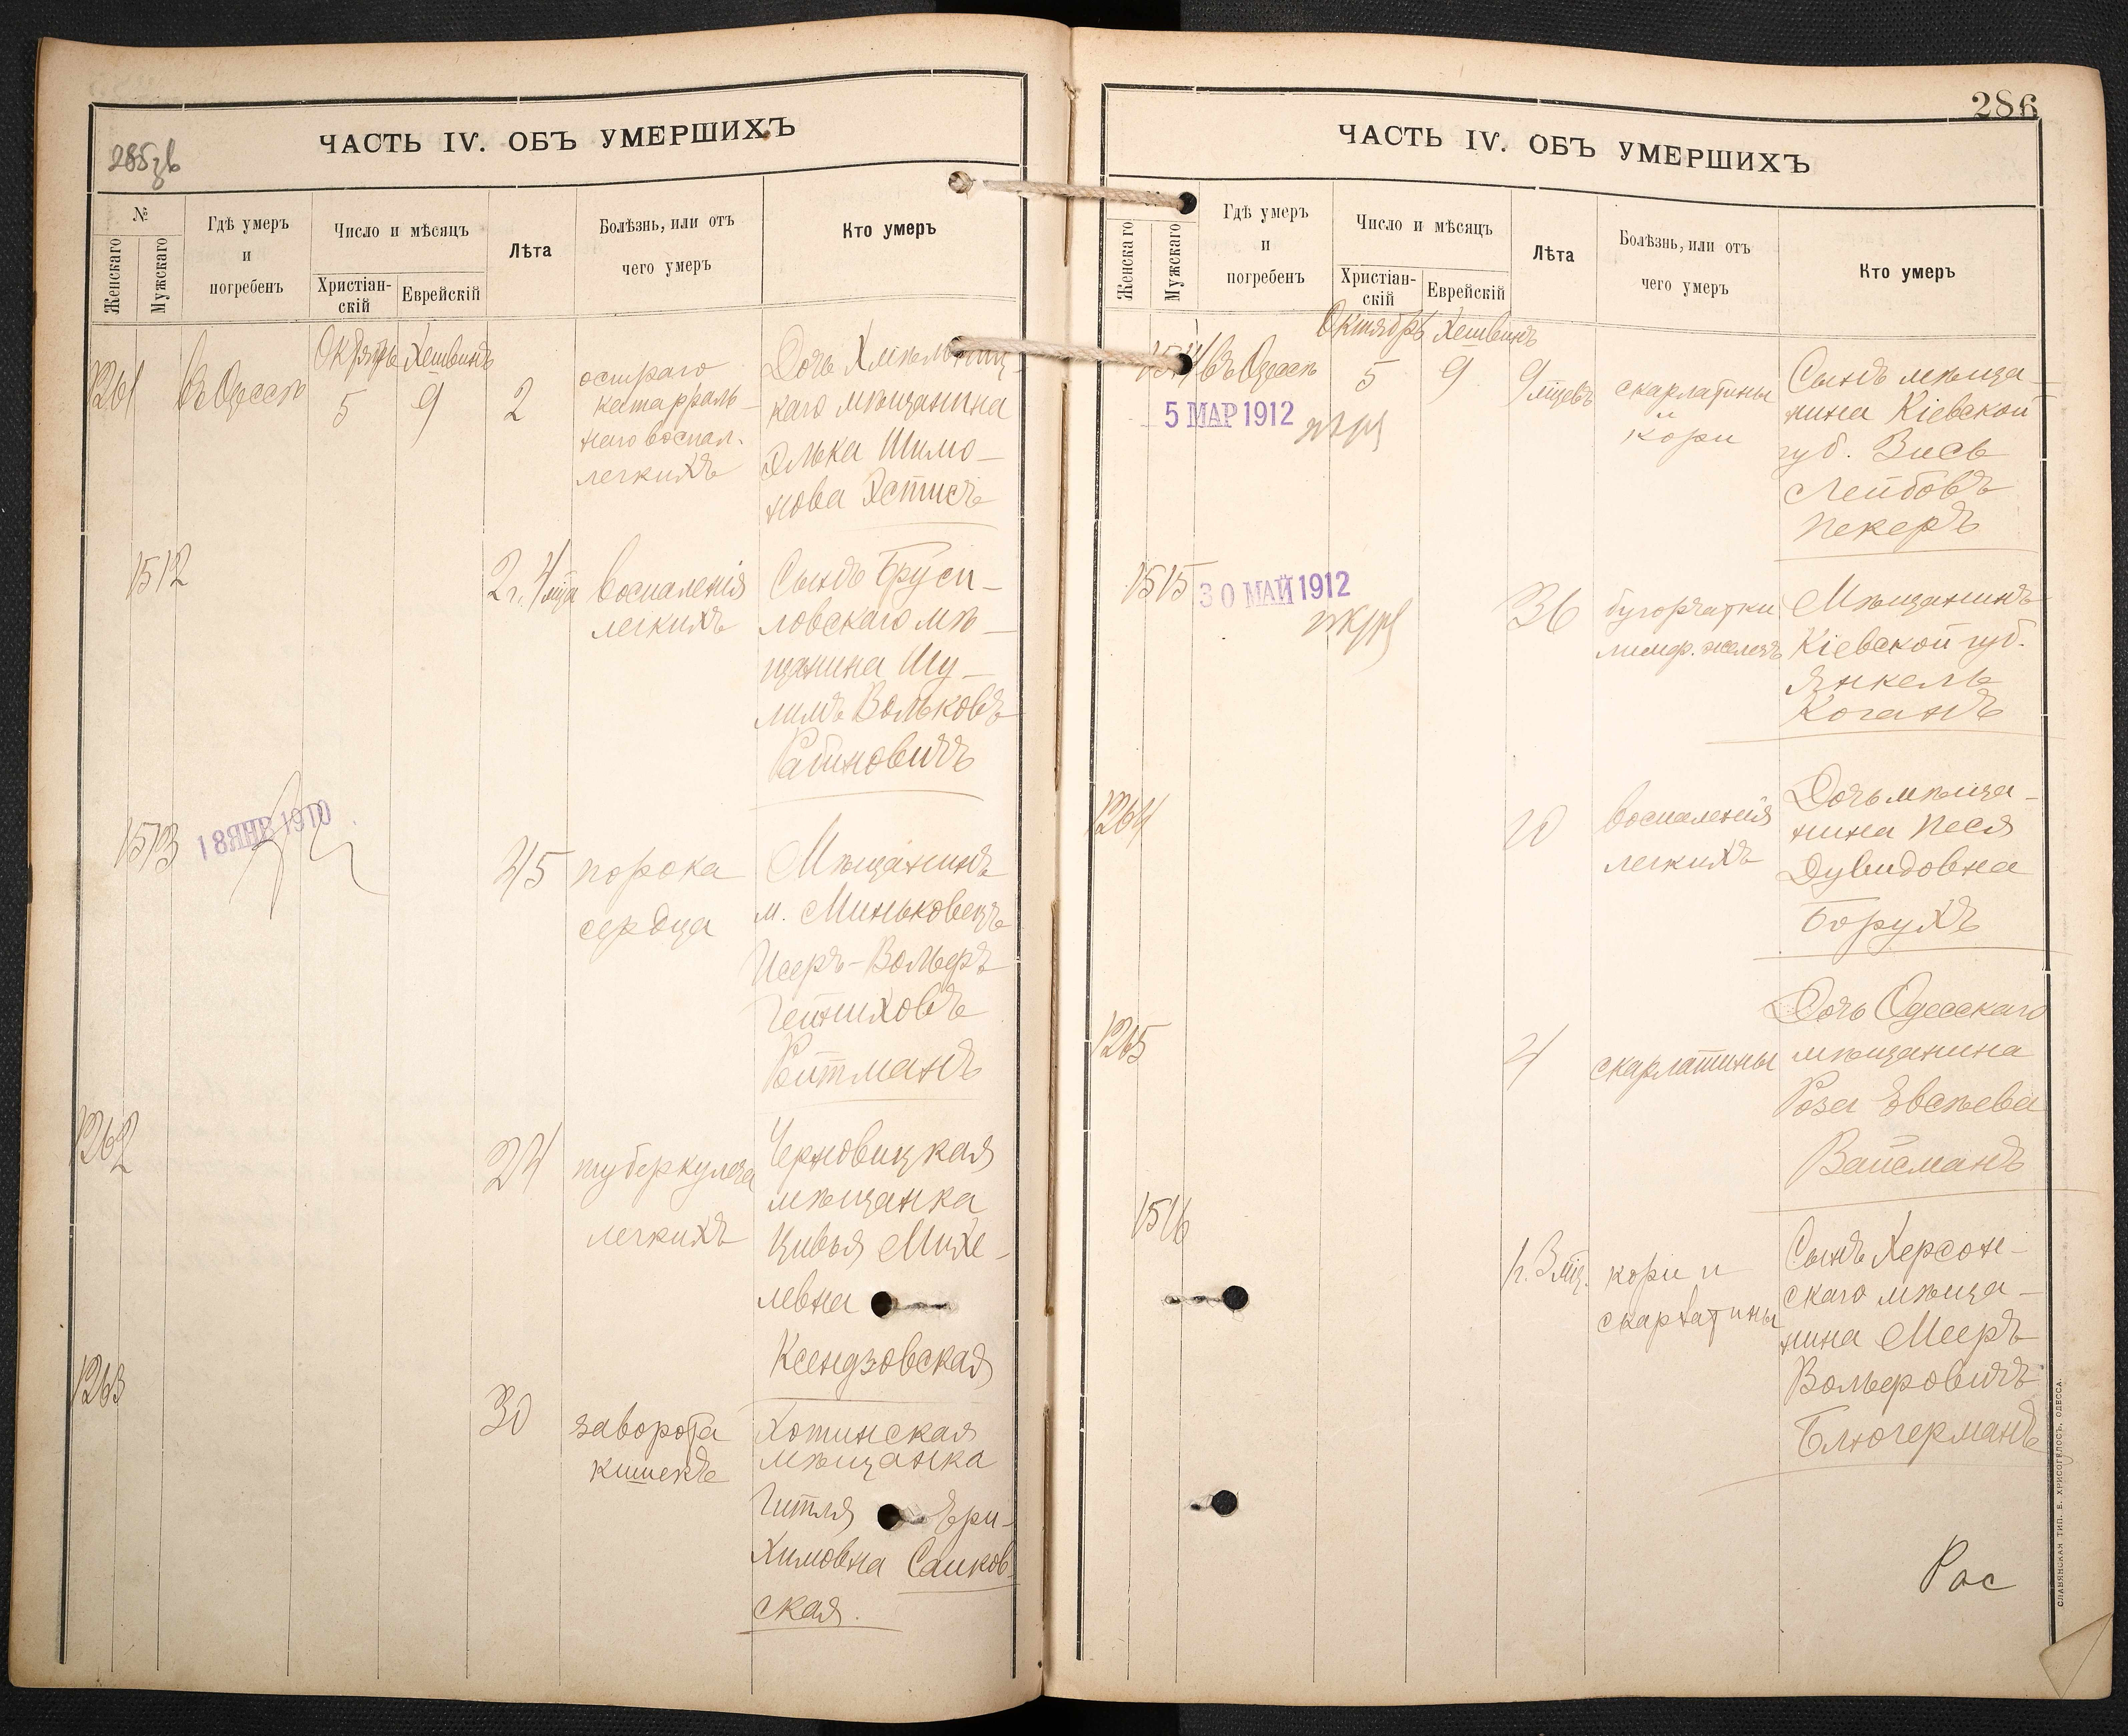 ЧАСТЬ IV. ОБЪ УМЕРШИХЪ
№
Женскаго
Мужскаго
Гдѣ умеръ
и
погребенъ
Число и мѣсяцъ
Христіан-
скій
Еврейскій
Лѣта
Болѣзнь, или отъ
чего умеръ
Кто умеръ
Октябрь Хешвинъ
1261 въ Одессѣ 5 9 2
остраго
катарраль-
наго воспал.
легкихъ
Дочь Хмѣльниц-
каго мѣщанина
Элька Шимо-
нова Эстисъ
1512
2 г. 4 мца
воспаленія
легкихъ
Сынъ Бруси-
ловскаго мѣ-
щанина Шу-
лимъ Вольковъ
Рабиновичъ
1513
18 ЯНВ 1910
45
порока
сердца
Мѣщанинъ
м. Миньковецъ
Исеръ-Вольфъ
Ройтманъ
1262
24
туберкулеза
легкихъ
Черновицкая
мѣщанка
Цивья Михе-
левна
Ксендзовская
1263
30
заворота
кишекъ
Хотинская
мѣщанка
Гитля Ери-
химовна Саиков-
ская.
286
ЧАСТЬ IV. ОБЪ УМЕРШИХЪ
Женскаго
Мужскаго
Гдѣ умеръ
и
погребенъ
Число и мѣсяцъ
Христіан-
скій
Еврейскій
Лѣта
Болѣзнь, или отъ
чего умеръ
Кто умеръ
Октябрь Хешвинъ
1514 въ Одессѣ 5 9 9 мцевъ
5 МАР 1912
скарлатины
и
кори
Сынъ мѣща-
нина Кіевской
губ. Зись
Лейбовъ
Пекеръ
1515
30 МАЙ 1912
36
бугорчатки
лимф. железъ
Мѣщанинъ
Кіевской губ.
Янкель
Коганъ
1264
20
воспаленія
легкихъ
Дочь мѣща-
нина Песя
Дувидовна
Борухъ
1265
4
скарлатины
Дочь Одесскаго
мѣщанина
Роза Евсѣева
Вайсманъ
1516
1 г. 3 мц.
кори и
скарлатины
Сынъ Херсон-
скаго мѣща-
нина Мееръ
Вольфовичъ
Блюгерманъ
Рас
СЛАВЯНСКАЯ ТИП. Е. ХРИСОГЕЛОСЪ, ОДЕССА.